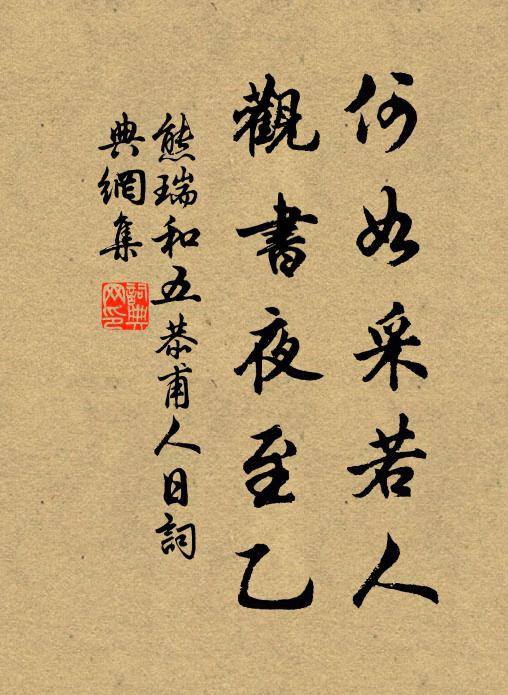 何如采若人
觀書夜至乙
熊瑞和五恭甫人日詞
典網集
詞典網印